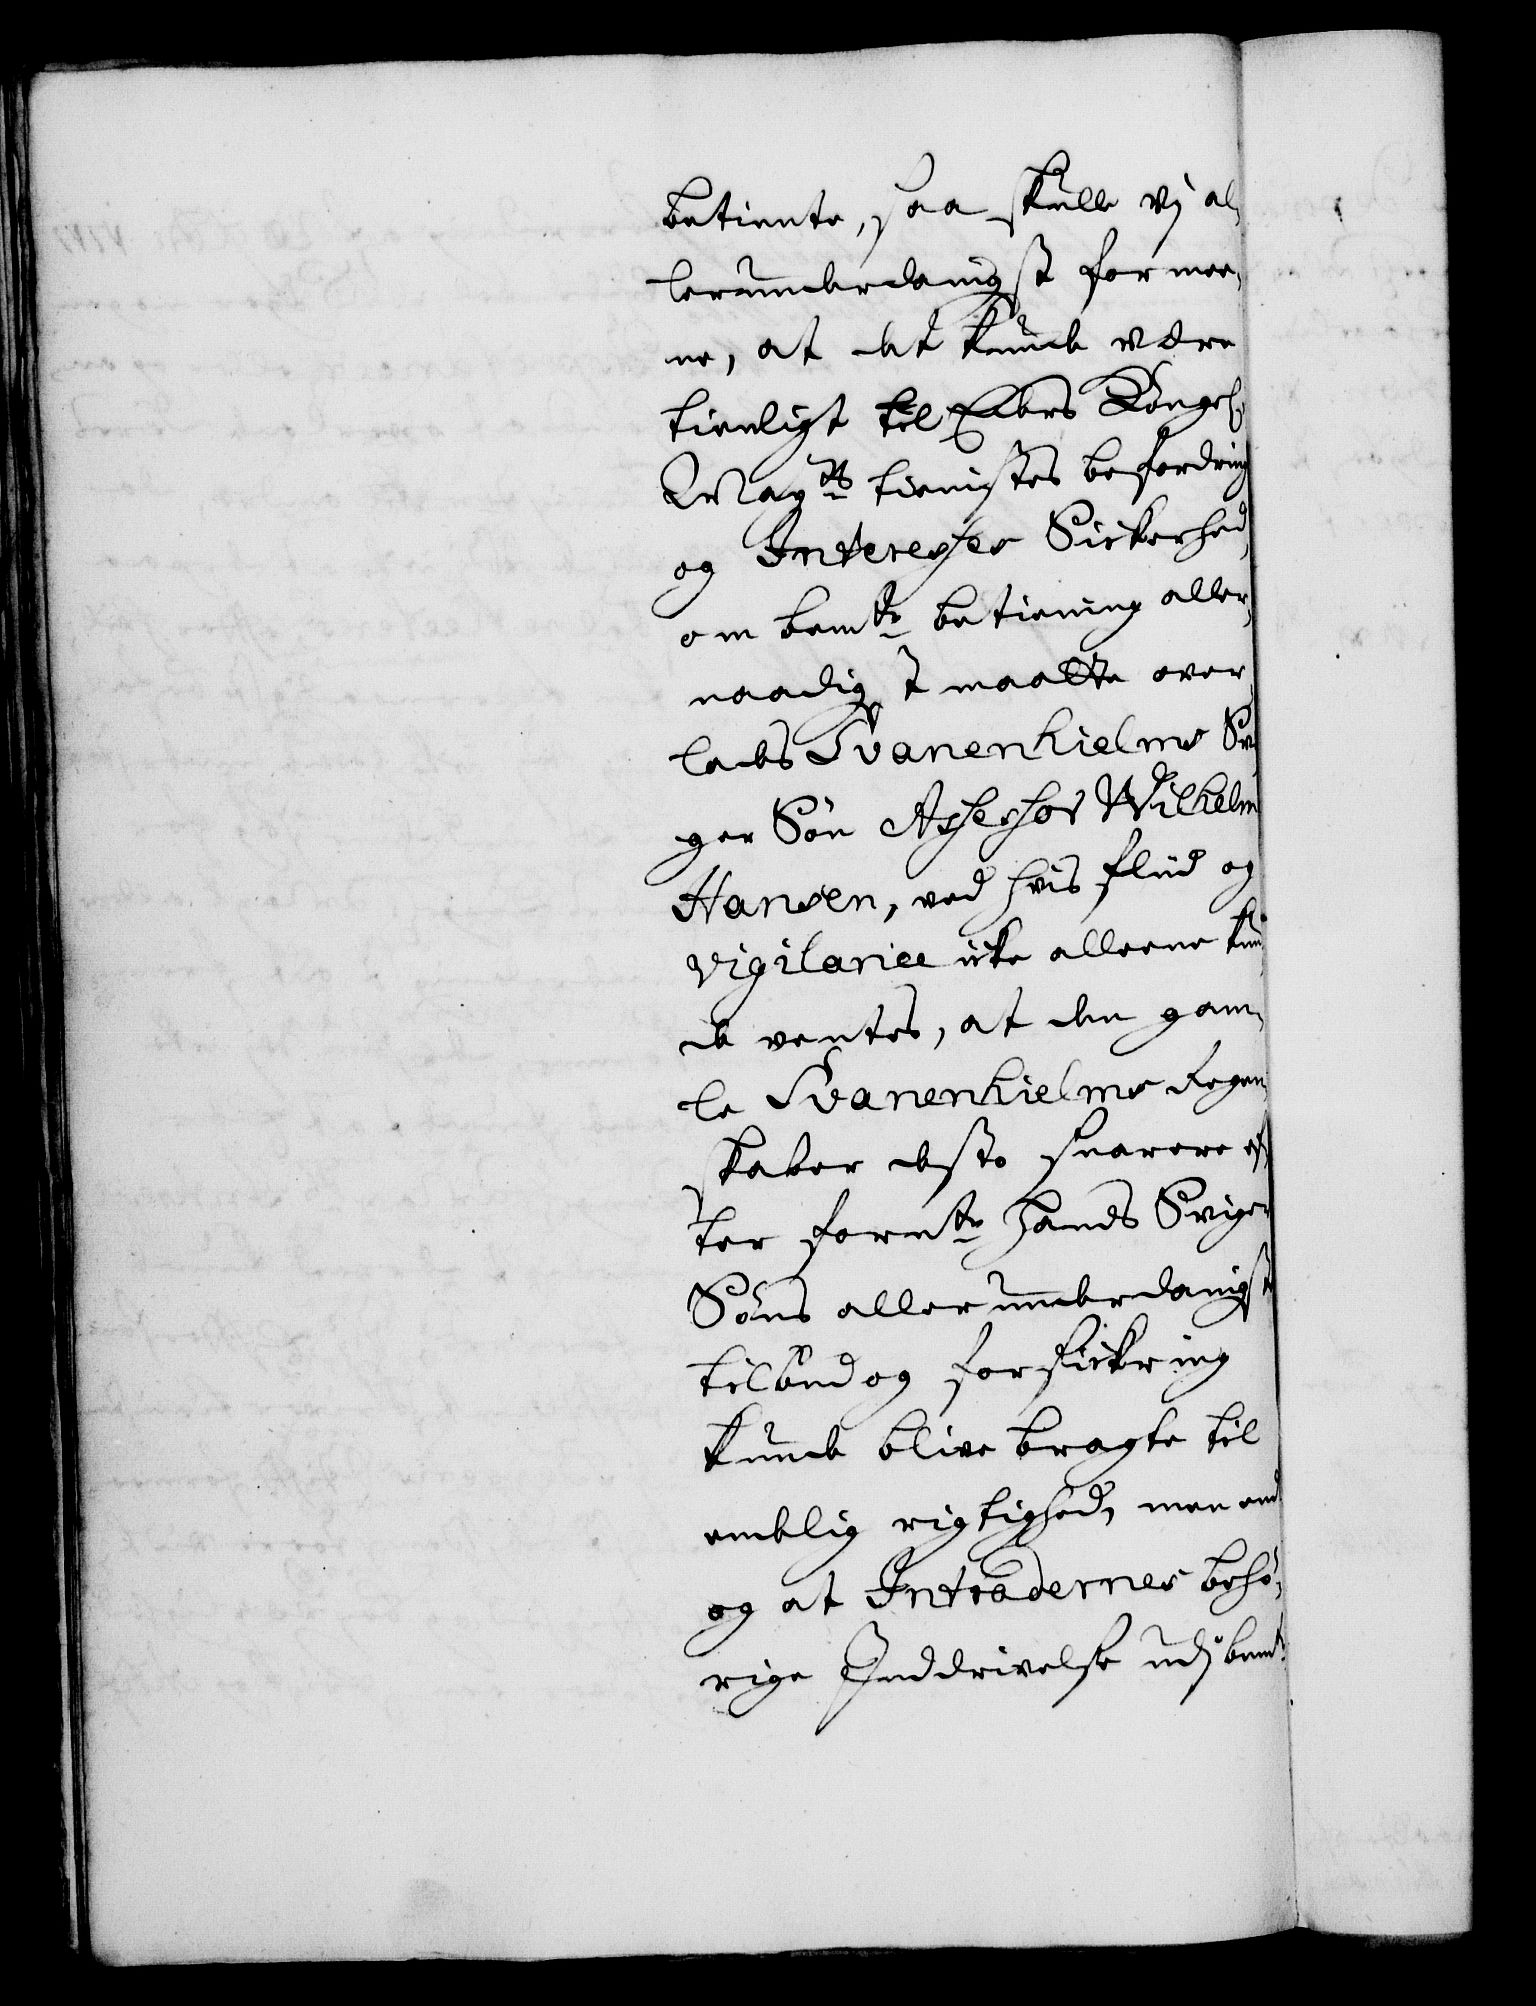 betiente, saa skulle vj al,
lerunderdanigst formee,
ne, at det kunde være
tienligt til Eders Kongel.
May.ts tienistes befordring
og Interesses Sickerhed,
om bem.te betiening aller,
naadigst maatte over,
lades Svanenhielms Svi,
ger Søn Assessor Wilhelm
Hansen, ved hvis fliid og
vigilance icke alleene kun,
de ventes, at den gam,
le Svanenhielms Regen,
skaber desto snarere ef,
ter forn.te hands Sviger
Søns allerunderdanigste
tilbud og forsickring
kunde blive bragte til
endelig rigtighed, men end
og at Intradernes behø,
rige Inddrivelse udj bem.te